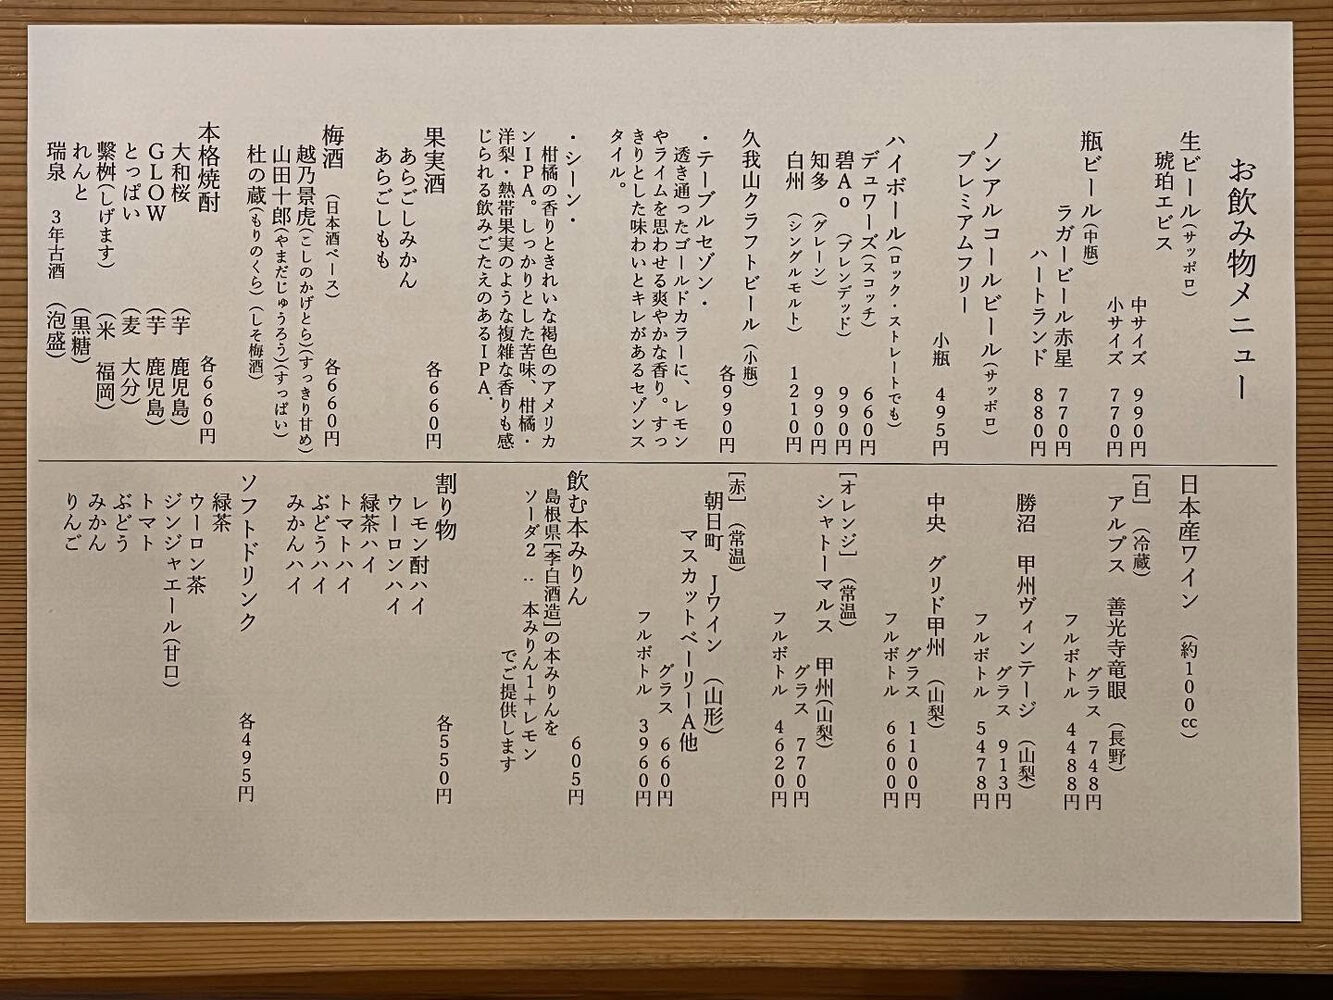 お飲み物メニュー
生ビール(サッポロ)
琥珀エビス
中サイズ 990円
小サイズ 770円
瓶ビール(中瓶)
ラガービール赤星 770円
ハートランド 880円
ノンアルコールビール(サッポロ)
プレミアムフリー
小瓶 495円
ハイボール(ロック・ストレートでも)
デュワーズ(スコッチ) 660円
碧Ao (ブレンデッド) 990円
知多 (グレーン) 990円
白州 (シングルモルト) 1210円
久我山クラフトビール (小瓶)
各990円
・テーブルセゾン・
透き通ったゴールドカラーに、レモン
やライムを思わせる爽やかな香り。すっ
きりとした味わいとキレがあるセゾンス
タイル。
・シーン・
柑橘の香りときれいな褐色のアメリカ
ンIPA。しっかりとした苦味、柑橘・
洋梨・熱帯果実のような複雑な香りも感
じられる飲みごたえのあるIPA.
果実酒 各660円
あらごしみかん
あらごしもも
梅酒 (日本酒ベース) 各660円
越乃景虎(こしのかげとら)(すっきり甘め)
山田十郎(やまだじゅうろう)(すっぱい)
杜の蔵(もりのくら)(しそ梅酒)
本格焼酎 各660円
大和桜 (芋 鹿児島)
GLOW (芋 鹿児島)
とっぱい (麦 大分)
繫桝(しげます) (米 福岡)
れんと (黒糖)
瑞泉 3年古酒 (泡盛)
日本産ワイン (約100cc)
[白] (冷蔵)
アルプス 善光寺竜眼 (長野)
グラス 748円
フルボトル 4488円
勝沼 甲州ヴィンテージ (山梨)
グラス 913円
フルボトル 5478円
中央 グリド甲州 (山梨)
グラス 1100円
フルボトル 6600円
[オレンジ] (常温)
シャトーマルス 甲州(山梨)
グラス 770円
フルボトル 4620円
[赤] (常温)
朝日町 Jワイン (山形)
マスカットベーリーA他
グラス 660円
フルボトル 3960円
飲む本みりん 605円
島根県[李白酒造]の本みりんを
ソーダ2 : 本みりん1+レモン
でご提供します
割り物 各550円
レモン酎ハイ
ウーロンハイ
緑茶ハイ
トマトハイ
ぶどうハイ
みかんハイ
ソフトドリンク 各495円
緑茶
ウーロン茶
ジンジャエール(甘口)
トマト
ぶどう
みかん
りんご